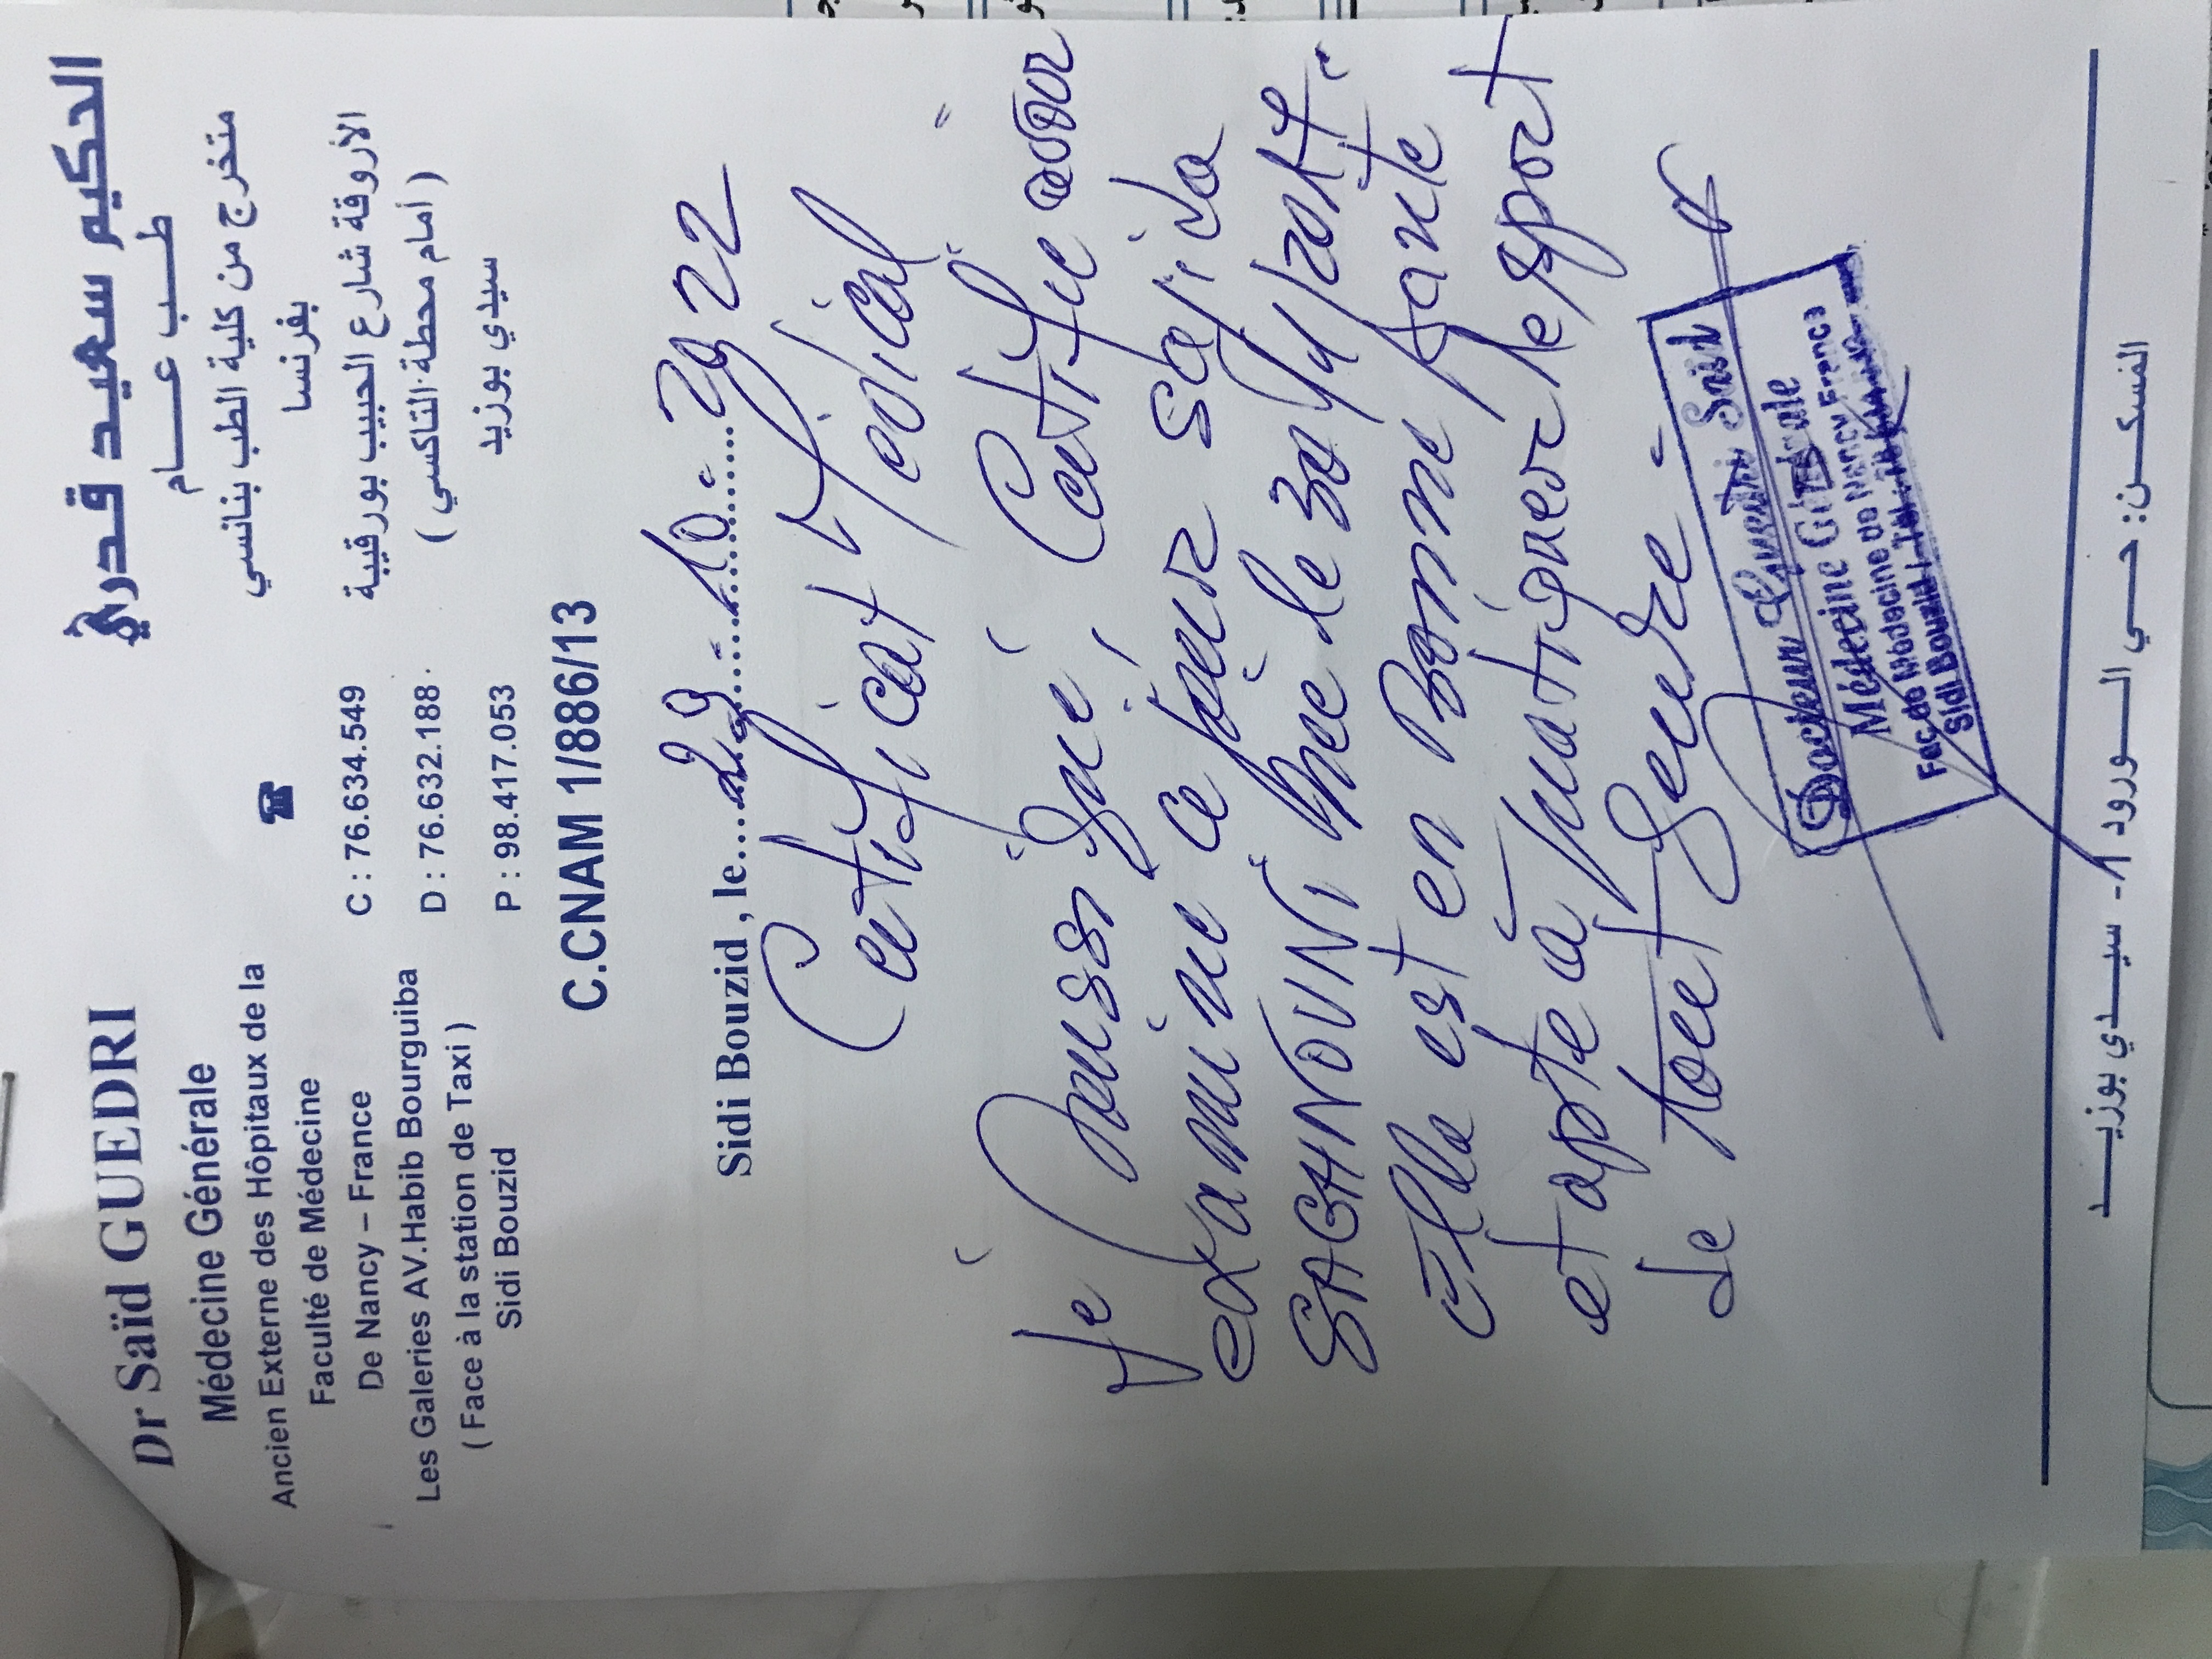 Dr Saïd GUEDRI
Médecine Générale
Ancien Externe des Hôpitaux de la
Faculté de Médecine
De Nancy – France
Les Galeries AV.Habib Bourguiba
( Face à la station de Taxi )
Sidi Bouzid
☎
C : 76.634.549
D : 76.632.188
P : 98.417.053
الحكيم سعيد قدري
طب عام
متخرج من كلية الطب بنانسي
بفرنسا
الأروقة شارع الحبيب بورقيبة
( أمام محطة التاكسي )
سيدي بوزيد
C.CNAM 1/886/13
Sidi Bouzid , le 29.10.2022
Certificat Médical
Je soussigné, Certifie avoir
examiné ce jour Sajida
GAGHNOUNI née le
Elle est en Bonne santé
et apte à pratiquer le sport
de tout genre
Docteur Guedri Said
Médecine Générale
Fac de Médecine de Nancy France
Sidi Bouzid
المسكن: حي الورود 1 - سيدي بوزيد